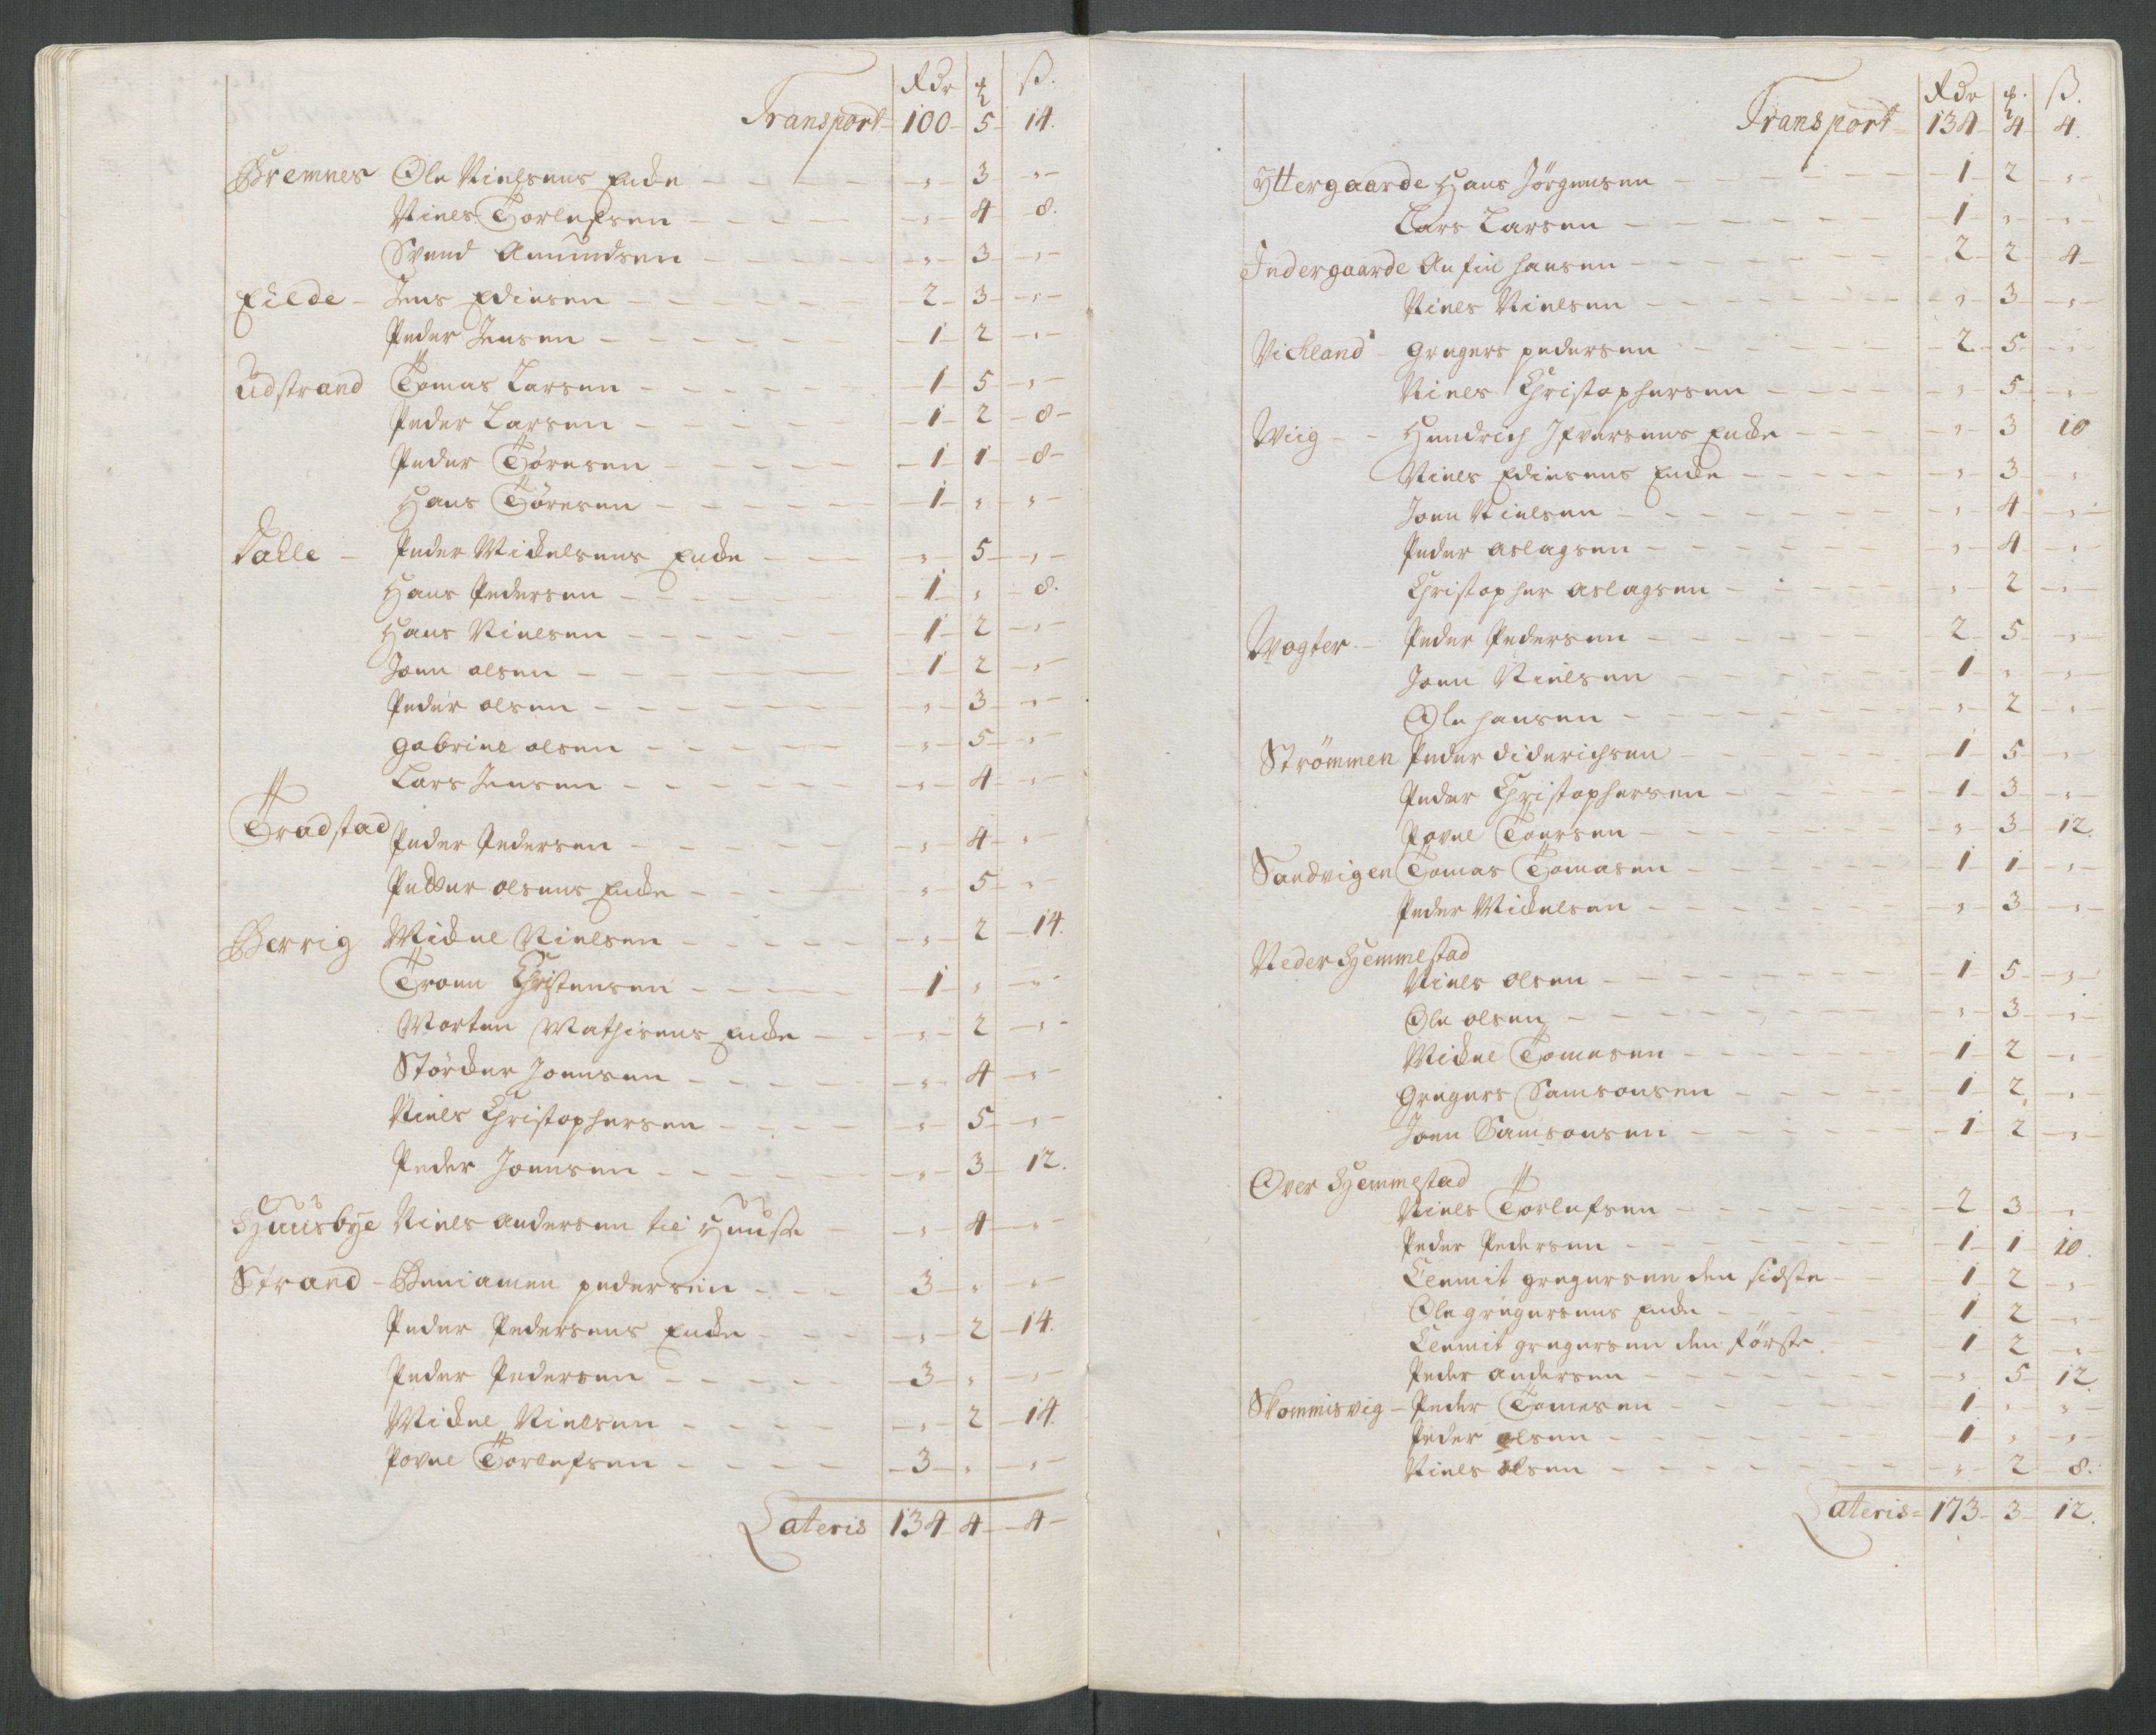 Rdr ꝑ ß.
Transport 100 5 14.
Bremnes Ole Nielsens Encke - 3 -
Niels Torlefsen - 4 8.
Svend Amundsen - 3 -
Eilde Jens Edisen 2 3 -
Peder Jensen 1 2 -
Udstrand Tomas Larsen 1 5 -
Peder Larsen 1 2 8
Peder Tøresen 1 1 8
Hans Tøresen 1 - -
Dahle Peder Mickelsens Encke - 5 -
Hans Pedersen 1 - 8.
Hans Nielsen 1 2 -
Joen olsen 1 2 -
Peder olsen - 3 -
Gabriel olsen - 5 -
Lars Jensen - 4 -
Tradstad
Peder Pedersen - 4 -
Petter olsens Encke - 5 -
Berrig Mickel Nielsen - 2 14.
Troen Christensen 1 - -
Morten Mathisens Encke - 2 -
Størcker Joensen - 4 -
Niels Christophersen - 5 -
Peder Joensen - 3 12.
Huusbye Niels andersen til Huuse - 4 -
Strand Beniamen pedersen 3 - -
Peder Pedersens Encke - 2 14.
Peder Pedersen 3 - -
Mickel Nielsen - 2 14.
Povel Torlefsen 3 - -
Lateris 134 4 4
Rdr ꝑ. ß.
Transport 134 4 4.
Yttergaarde Hans Jørgensen 1 2 -
Lars Larsen 1 - -
Indergaarde Anfin hansen 2 2 4
Niels Nielsen - 3 -
Vickland Gregers pedersen 2 5 -
Niels Christophersen - 5 -
Wiig Hendrich Ifversens Encke - 3 10
Niels Edisens Encke - 3 -
Joen Nielsen - 4 -
Peder aslagsen - 4 -
Christopher aslagsen - 2 -
Wogter Peder Pedersen 2 5 -
Joen Nielsen 1 - -
Ole hansen - 2 -
Strömmen Peder diderichsen 1 5 -
Peder Christophersen 1 3 -
Povel Toersen - 3 12.
Sandvigen Tomas Tomasen 1 1 -
Peder Mickelsen - 3 -
Neder Hemmestad
Niels olsen 1 5 -
Ole olsen - 3 -
Mickel Tomesen 1 2 -
Gregers Samsonsen 1 2 -
Joen Samsonsen 1 2 -
Over Hemmestad
Niels Torlefsen 2 3 -
Peder Pedersen 1 1 10.
Clemit gregersen den sidste 1 2 -
Ole gregersens Encke 1 2 -
Clemit gregersen den förste 1 2 -
Peder andersen - 5 12.
Skommisvig Peder Tomesen 1 - -
Peder olsen 1 - -
Niels olsen - 2 8.
Lateris 173 3 12.